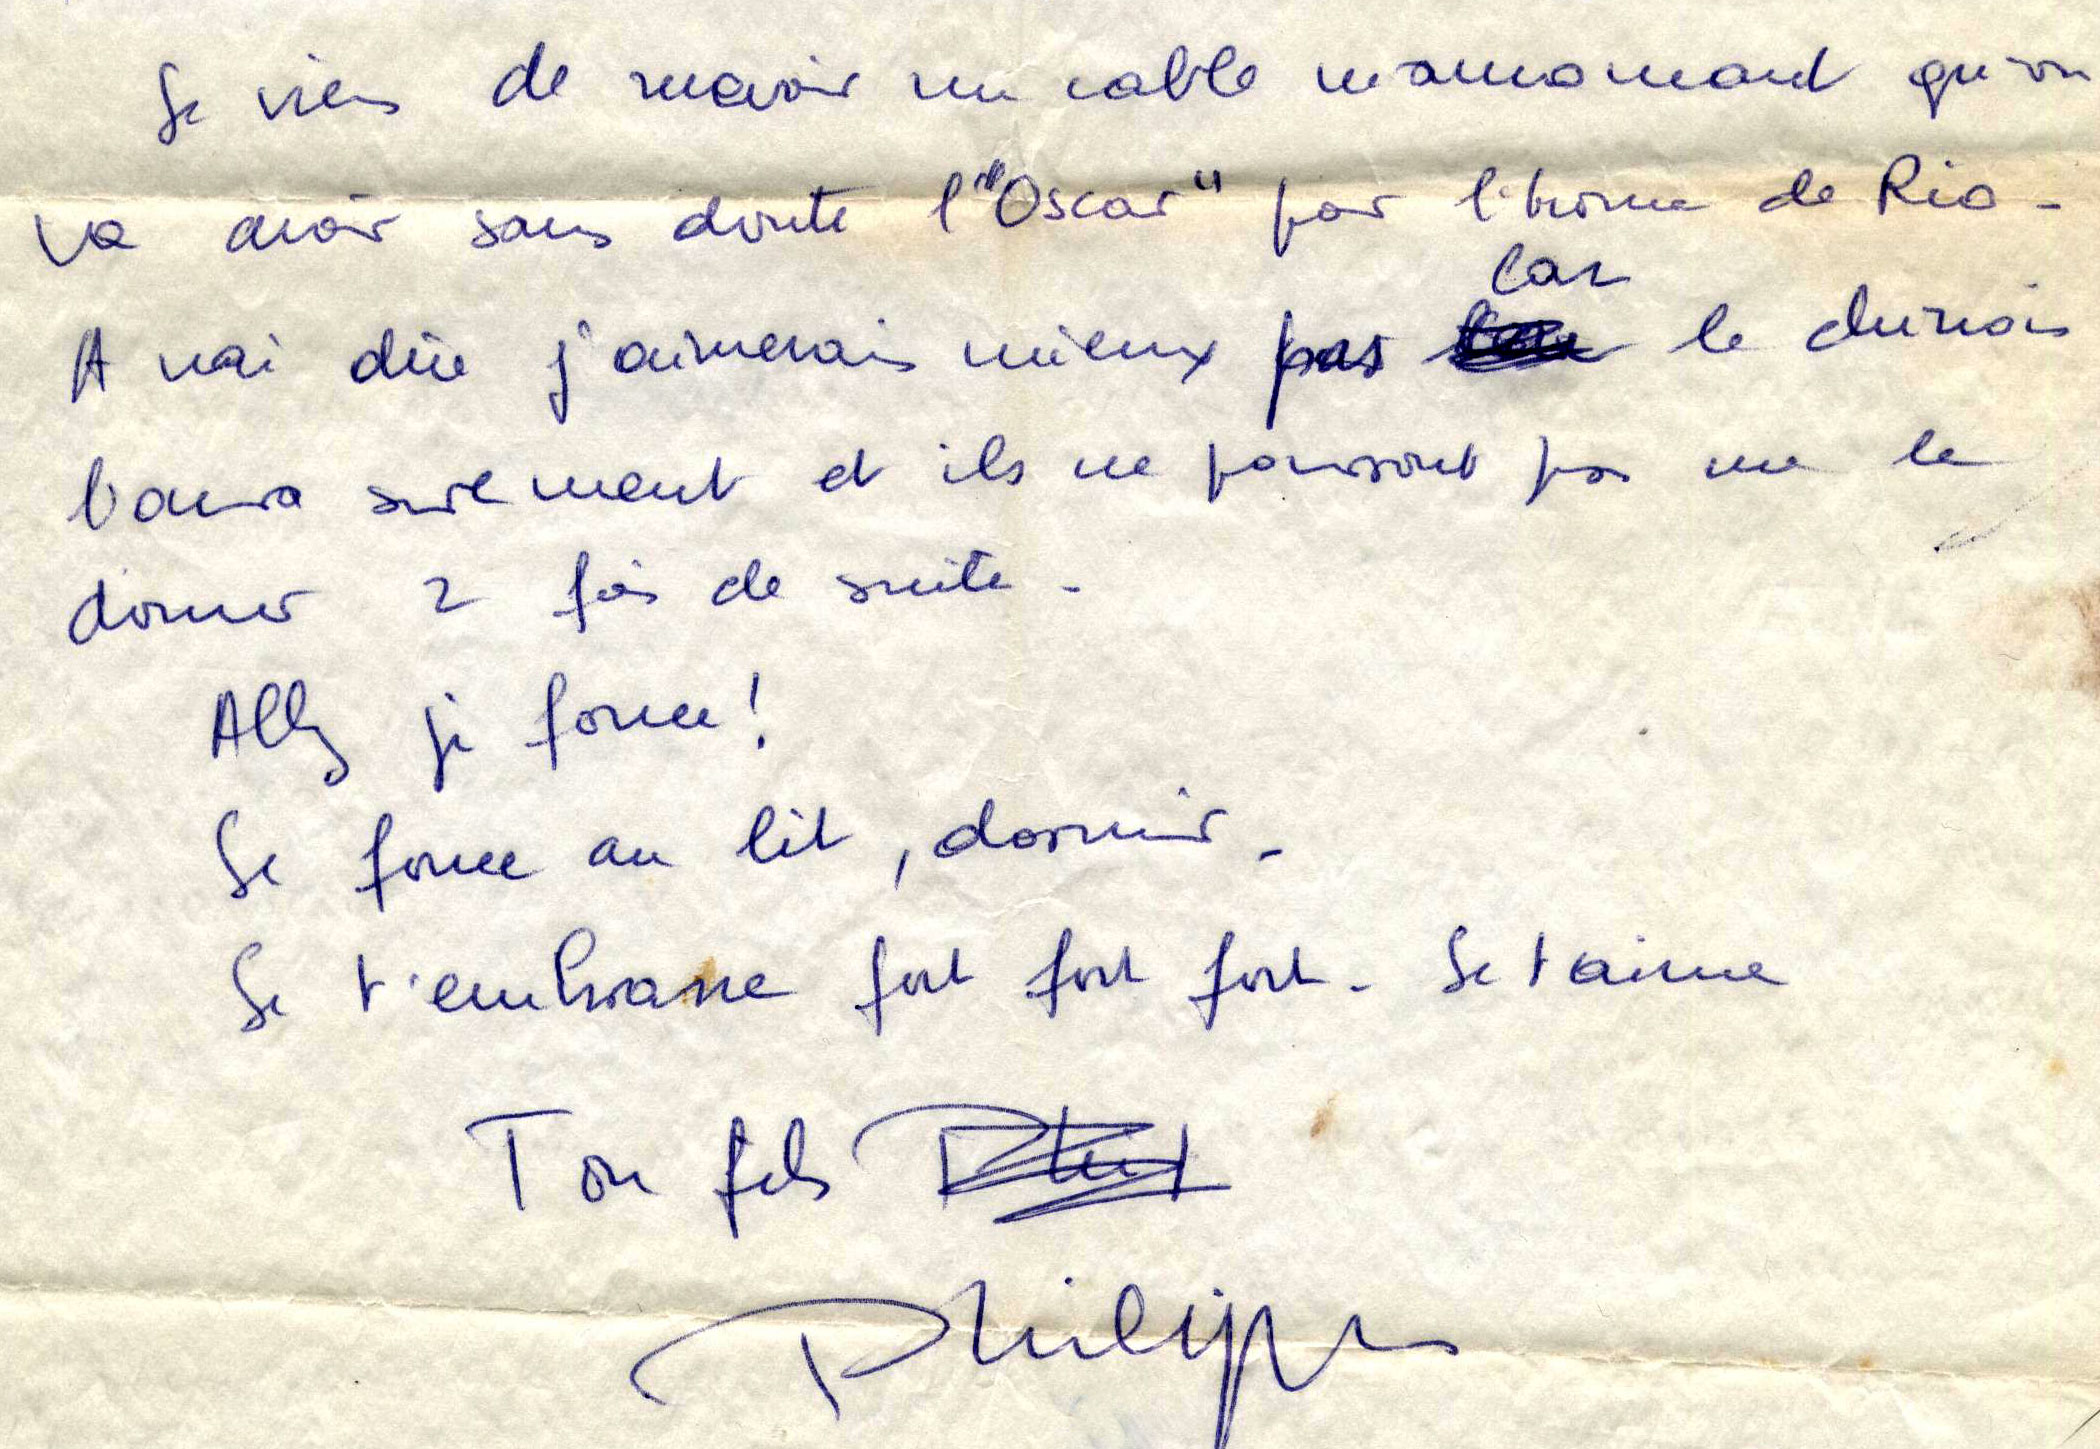 Je viens de recevoir un cable m'annonçant qu'on
va avoir sans doute l'"Oscar" pour l'homme de Rio -
car
A vrai dire j'aimerais mieux pas le chinois
l'aura surement et ils ne pourront pas me le
donner 2 fois de suite -
Ally je fonce!
Je fonce au lit, dormir -
Je t'embrasse fort fort fort - Je t'aime
Ton fils
Philippe